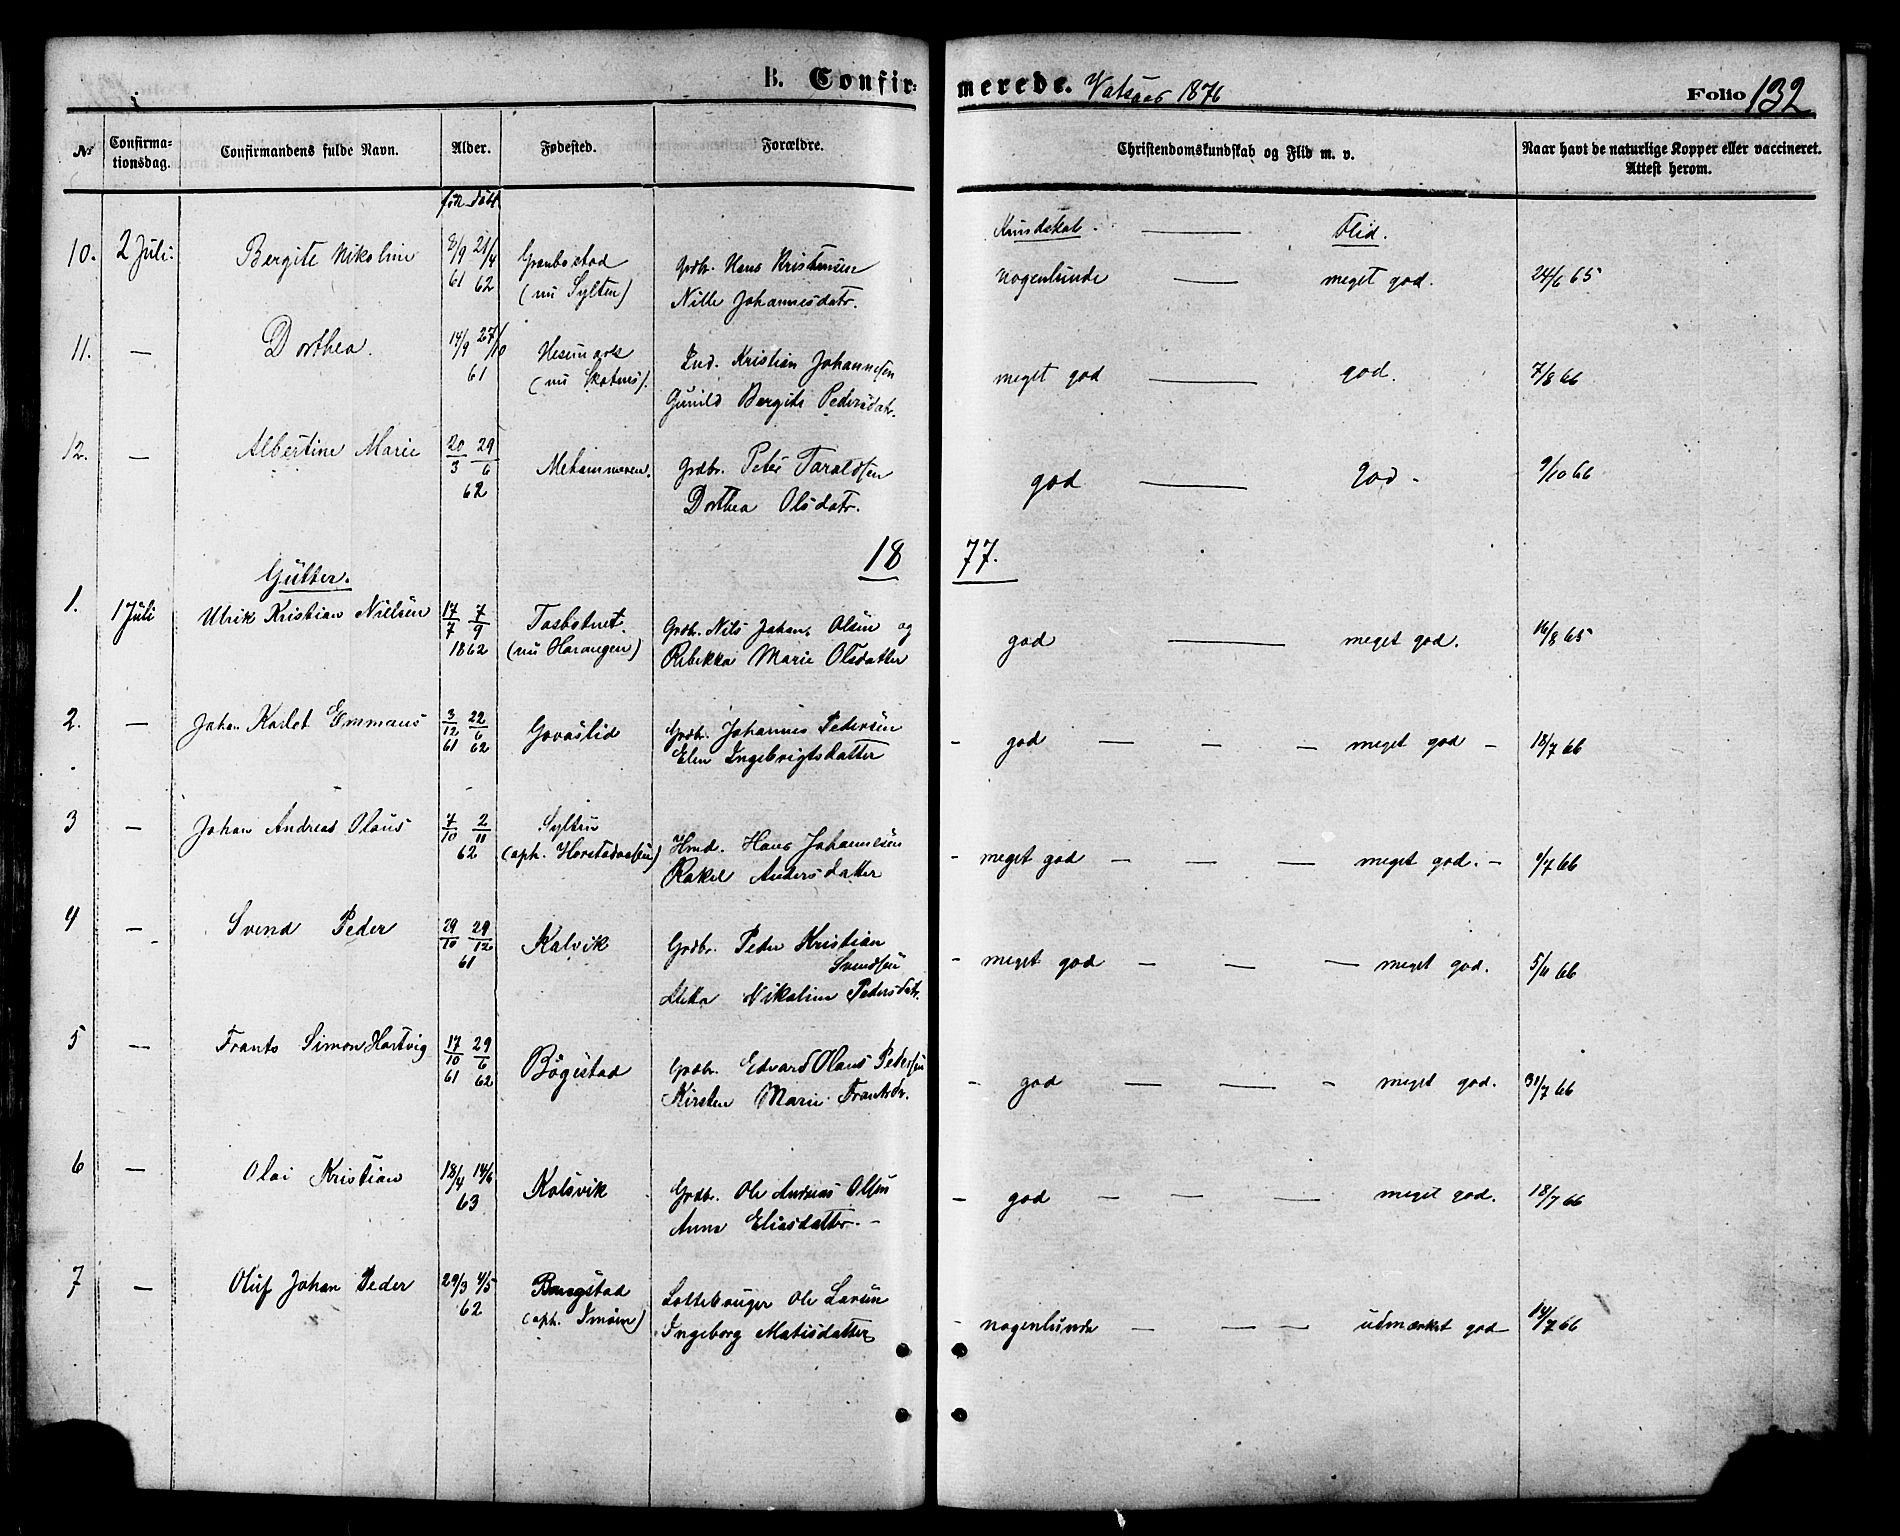 B. Confir-merede. Vatsaas 1876 Folio 132
No Confirma-tionsdag. Confirmandens fulde Navn. Alder. Fødested. Forældre. Christendomskundskab og Flid m. v. Naar havt de naturlige Kopper eller vaccineret. Attest herom.
fød. døbt
Kundskab. — Flid.
10. 2 Juli. Bergite Nikoline 8/9 61 21/4 62 Granbostad (nu Sylten) Grdbr. Hans Kristensen
Nille Johannesdatr. nogenlunde — meget god. 24/6 65
11. — Dorthea. 14/9 27/10 61 (nu Skatnes). Ind. Kristian Johannesen
Gunild Bergite Pedersdatr. meget god — god. 7/8 66
12. — Albertine Marie 20/3 29/6 62 Grdbr. Peter Taraldsen
Dorthea Olsdatr. god — god. 9/10 66
18 77.
Gutter.
1. 1 Juli Ulrik Kristian Nielsen 17/7 7/9 1862 (nu Harangen) Grdbr. Nils Johan Olsen og
Rebekka Marie Olsdatter god — meget god. 16/8 65
2. — Johan Karlot Emmaus 3/12 61 22/6 62 Govaslid Grdbr. Johannes Pedersen
Elen Ingebrigtsdatter - god — - - meget god - 18/7 66
3 — Johan Andreas Olaus 7/10 2/11 62 Sylten Hmd. Hans Johannesen
Rakel Andersdatter - meget god — — — meget god. - 9/7 66
4 — Svend Peder 29/10 29/12 61 Kalvik Grdbr. Peder Kristian
Svendsen
Nikoline Pedersdatr. - meget god - — — meget god. 5/11 66
5 — Frants Simon Hartvig 17/10 61 29/6 62 Bøgestad Grdbr. Edvard Olaus Pedersen
Kirsten Marie Frantsdr. - god — — - meget god. 31/7 66
6 — Olai Kristian 18/4 14/6 63 Kolsvik Grdbr. Ole Andreas Olsen
Anne Eliasdatter. - - god - — — meget god. 18/7 66
7 — Oluf Johan Peder 29/3 4/5 62 Baugstad Ole Larsen
Ingeborg Matisdatter - nogenlunde — — — udmærket god 14/7 66